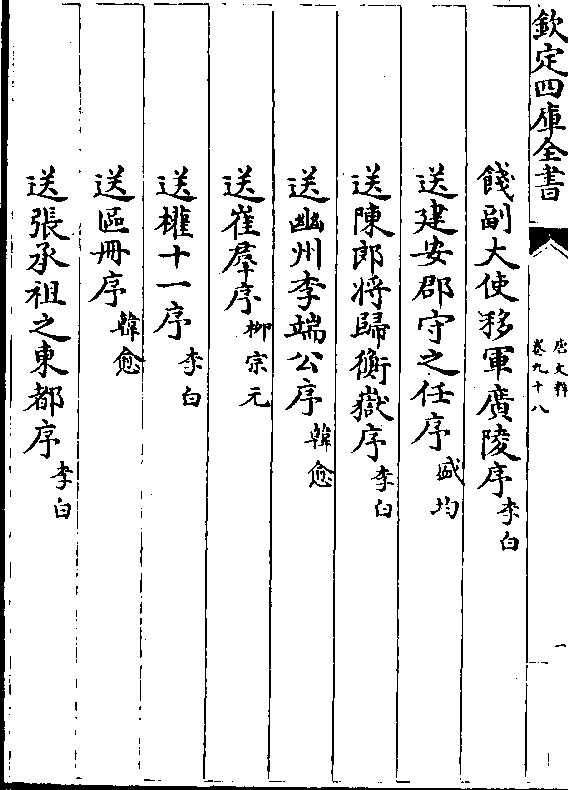 欽定四庫全書
唐文粹
卷九十八
一
餞副大使移軍廣陵序李白
送建安郡守之任序盛均
送陳郎將歸衡嶽序李白
送幽州李端公序韓愈
送崔羣序柳宗元
送權十一序李白
送區冊序韓愈
送張承祖之東都序李白